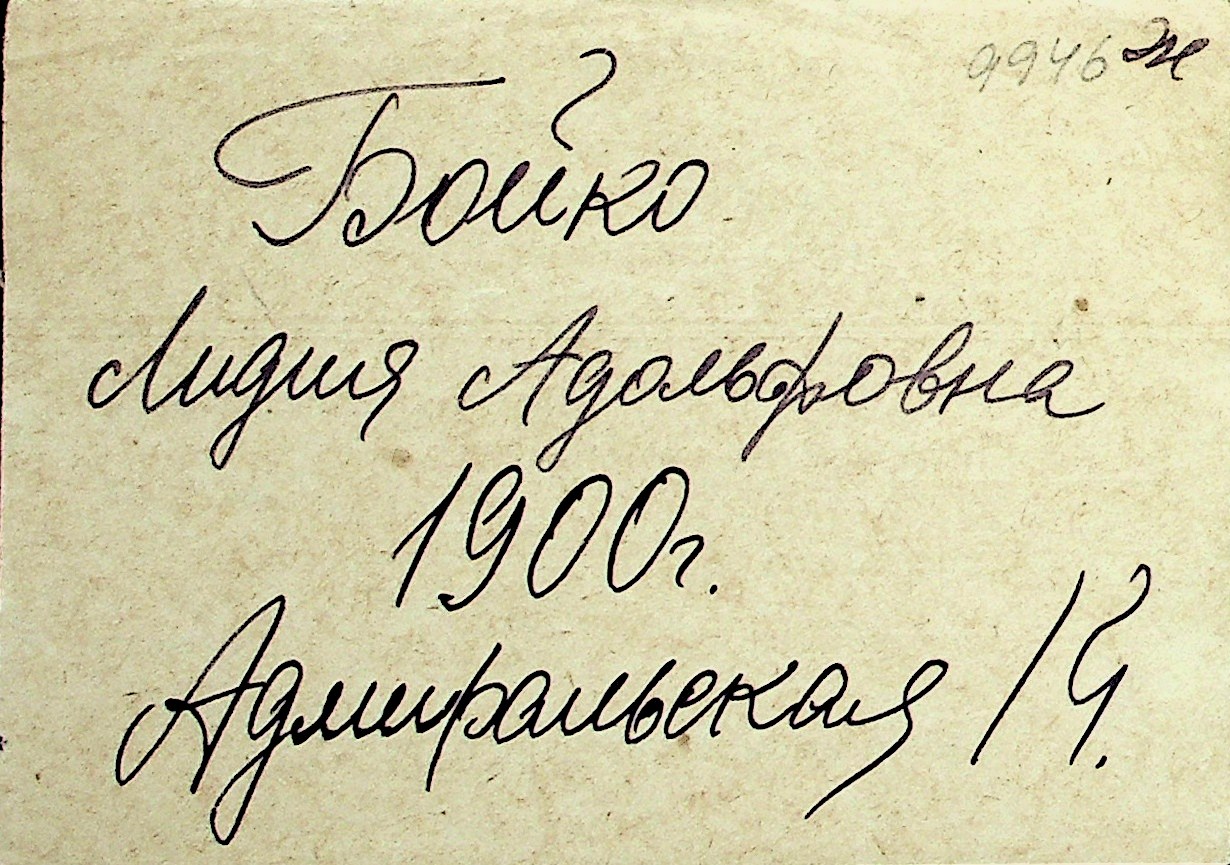 9946 Ж
Бойко
Лидия Адольфовна
1900 г.
Адмиральская 14.